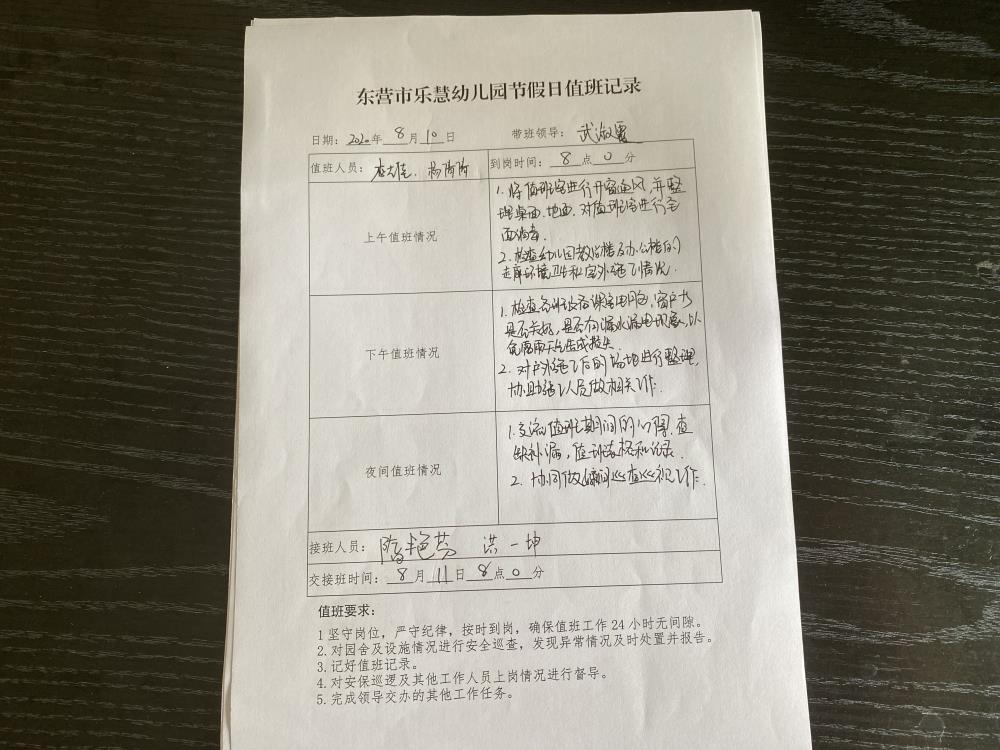 东营市乐慧幼儿园节假日值班记录
日期：2020年 8 月 10 日 带班领导：武淑霞
值班人员： 杨阶阶 到岗时间：8 点 0 分
上午值班情况
1. 将值班室进行开窗通风，并整
理桌面、地面，对值班室进行全
面消毒.
2. 检查幼儿园教学楼及办公楼的
走廊环境卫生和室外施工情况.
下午值班情况
1. 检查各班设备 ，窗户
是否关好，是否有漏水漏电现象，以
免雷雨天气造成损失.
2. 对户外施工后的场地进行整理，
协助施工人员做相关工作.
夜间值班情况
1. 交流值班期间的心得，查
缺补漏，值班表格和记录.
2. 协同做好夜间巡查巡视工作.
接班人员： 隋艳芬 洪一坤
交接班时间：8 月 11 日 8 点 0 分
值班要求：
1 坚守岗位，严守纪律，按时到岗，确保值班工作 24 小时无间隙。
2. 对园舍及设施情况进行安全巡查，发现异常情况及时处置并报告。
3. 记好值班记录。
4. 对安保巡逻及其他工作人员上岗情况进行督导。
5. 完成领导交办的其他工作任务。